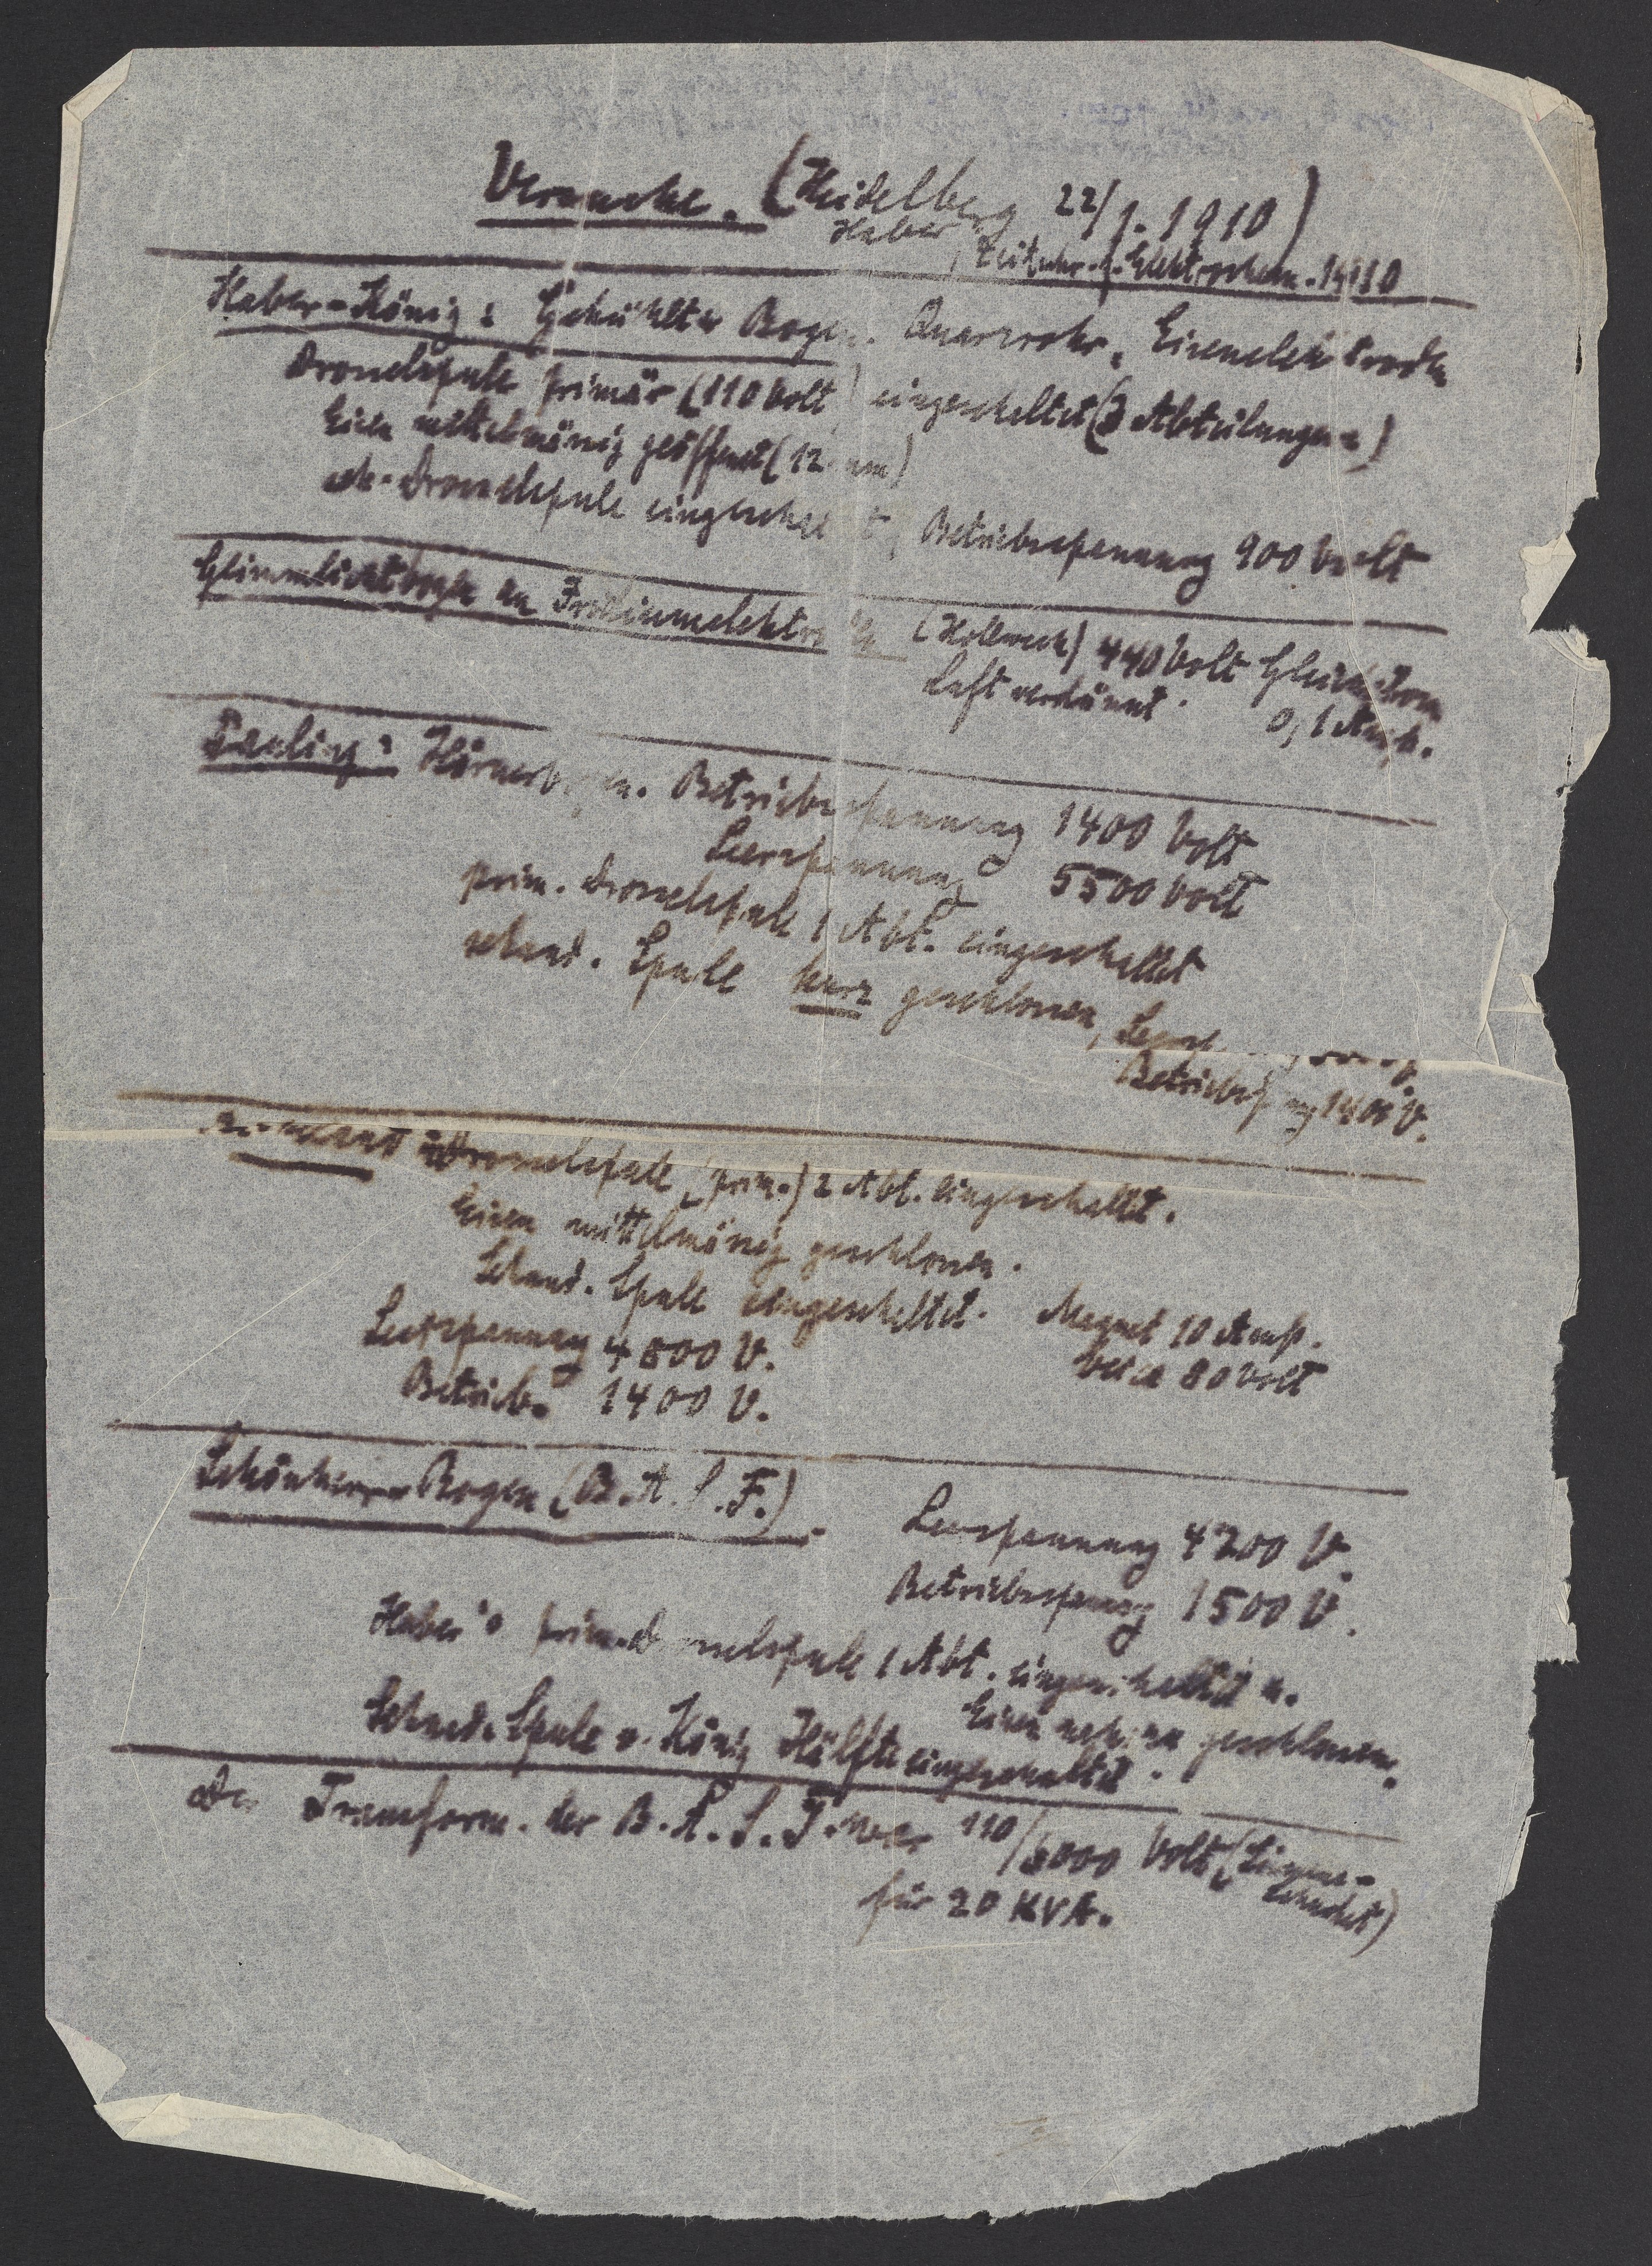 Versuche. (Heidelberg 22/1. 1910)
Haber, Zeitschr. f. Elektrochem. 1910
Haber-König: Gekühlter Bogen. Quarzrohr, Eisenelektroden
Drosselspule primär (110 Volt) eingeschaltet (3 Abteilungen)
Eisen mittelmässig geöffnet (12 cm)
Drosselspule eingeschaltet, Betriebsspannung 900 Volt
Glimmlichtbogen an Iridiumelektroden (Holwech) 440 Volt Gleichstrom
Luft verdünnt. 0,1 Amp.
Pauling: Hörnerbogen. Betriebsspannung 1400 Volt
Leerspannung 5500 Volt
prim. Drosselspule 1 Abt. eingeschaltet
sekund. Spule kurz geschlossen,
Betriebsspang 1400 V.
Drosselspule (prim.) 2 Abt. eingeschaltet.
Eisen mittelmässig geschlossen.
Sekund. Spule eingeschaltet. Magnet 10 Amp.
Leerspannung 4800 V. bei ca 80 Volt
Betrieb. 1400 V.
Schönherr-Bogen (B.A.S.F.). Leerspannung 4200 V.
Betriebsspannung 1500 V.
Haber's prim. Drosselspule 1 Abt. eingeschaltet u.
Eisen geschlossen.
Sekund. Spule v. König Hälfte eingeschaltet.
Der Transform. der B.A.S.F. war 110/5000 Volt (Siemens-
Schuckert)
für 20 KVA.